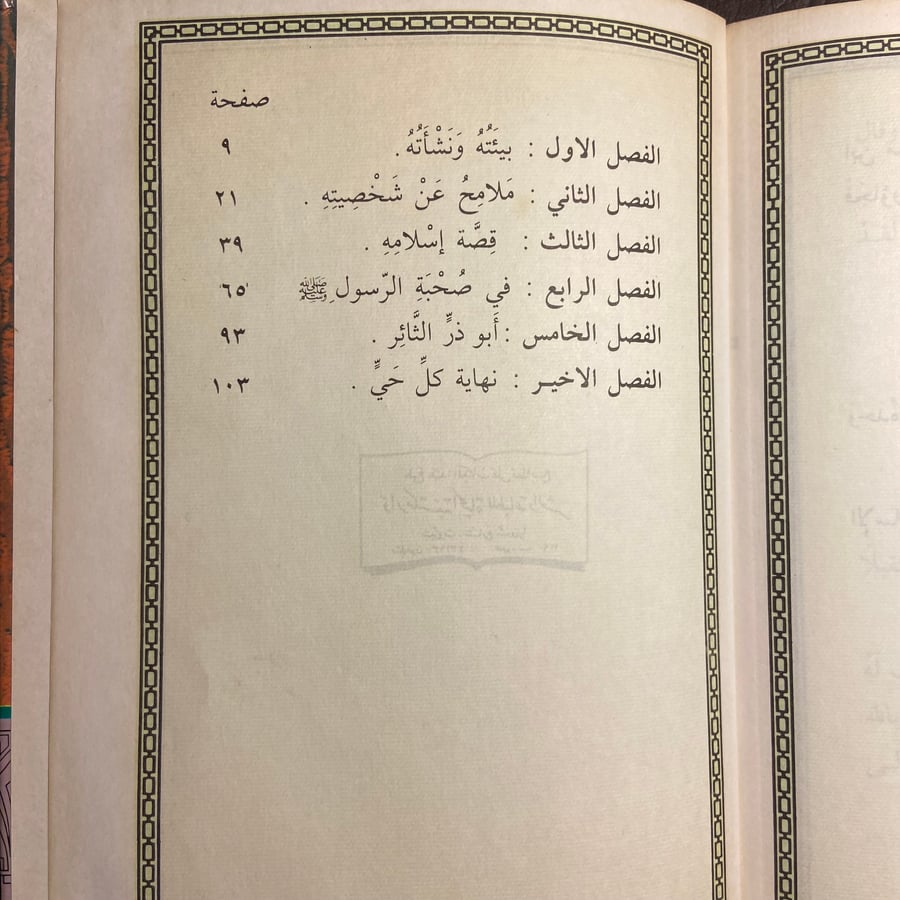 صفحة
الفصل الاول : بيئَتُهُ وَنَشْأَتُهُ. ٩
الفصل الثاني : مَلامِحُ عَنْ شَخْصِيتِهِ . ٢١
الفصل الثالث : قِصَّة إسْلامِهِ . ٣٩
الفصل الرابع : في صُحْبَةِ الرّسول ﷺ. ٦٥
الفصل الخامس : أَبو ذرٍّ الثَّائِر . ٩٣
الفصل الاخيـر : نهاية كلِّ حَيٍّ . ١٠٣